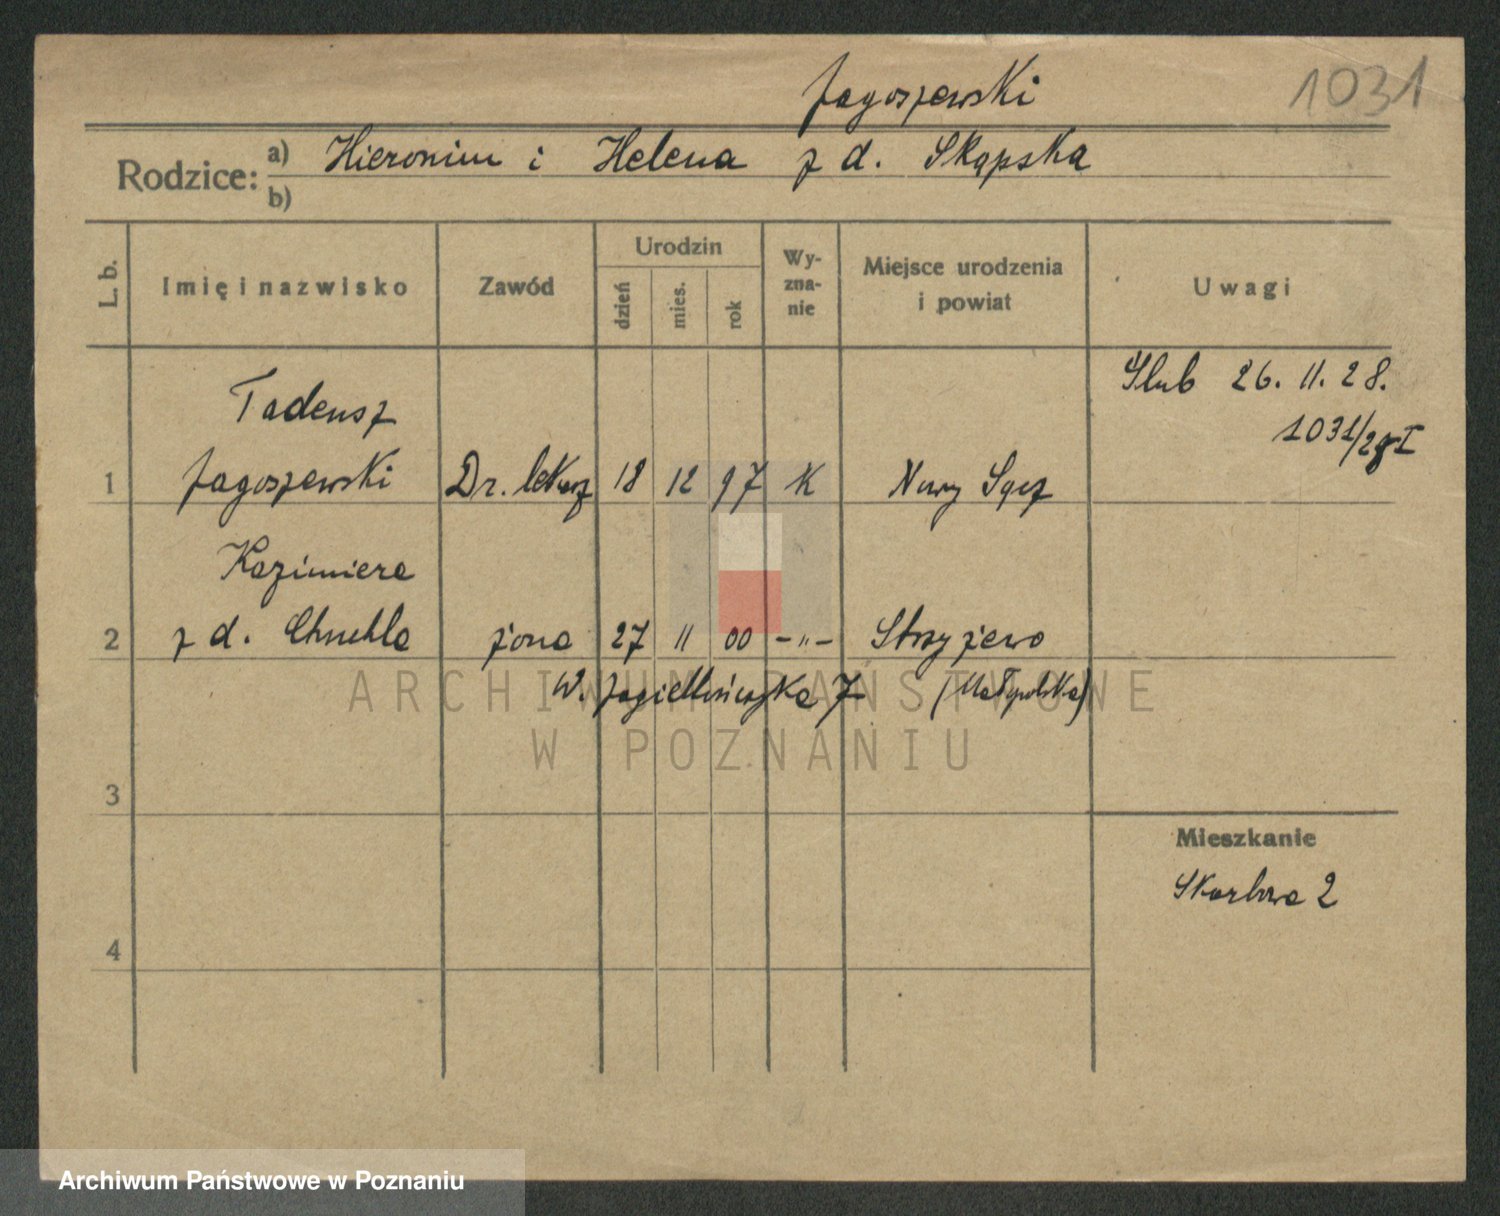 Jagoszewski
1031
Rodzice: a) Hieronim i Helena z d. Skąpska
b)
L. b.
Imię i nazwisko
Zawód
Urodzin
dzień
mies.
rok
Wy-
zna-
nie
Miejsce urodzenia
i powiat
Uwagi
Ślub 26. 11. 28.
1031/28 I
Tadeusz
1 Jagoszewski Dr. lekarz 18 12 97 K Nowy Sącz
Kazimiera
2 z d. żona 27 11 00 -"- Strzyżewo
W. Jagiellończyka 7 (Małopolska)
3
4
Mieszkanie
Skarbowa 2
ARCHIWUM PAŃSTWOWE
W POZNANIU
Archiwum Państwowe w Poznaniu